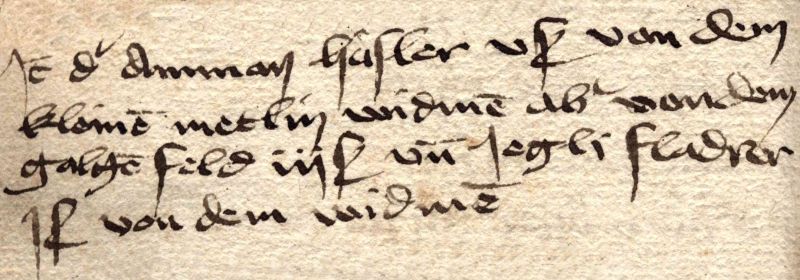 It d' amman häsler vß von dem
kleinē metlin widmē ab' von dem
galgē feld iijß vn̄ Jegli fladrer
jß von dem widmē